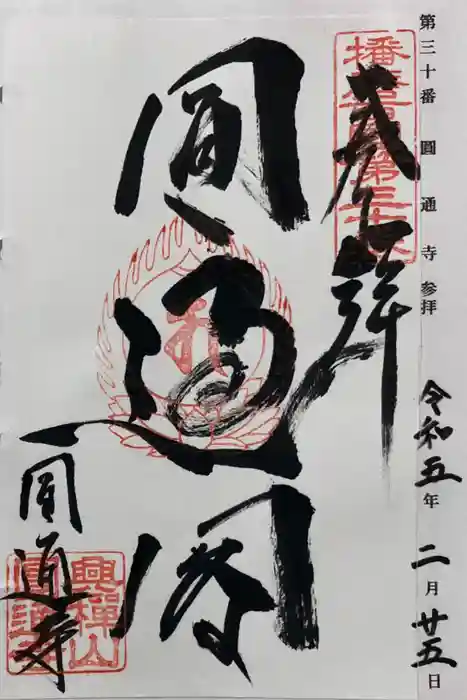 第三十番 圓通寺 参拝
令和五年二月廿五日
奉拝
播磨西國第三十番
圓通閣
圓通寺
興禪山
圓通寺